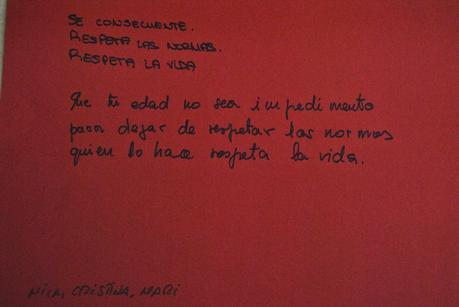 SE CONSECUENTE.
RESPETA LAS NORMAS.
RESPETA LA VIDA
Que tu edad no sea impedimento
para dejar de respetar las normas
quien lo hace respeta la vida.
CRISTINA, MARI